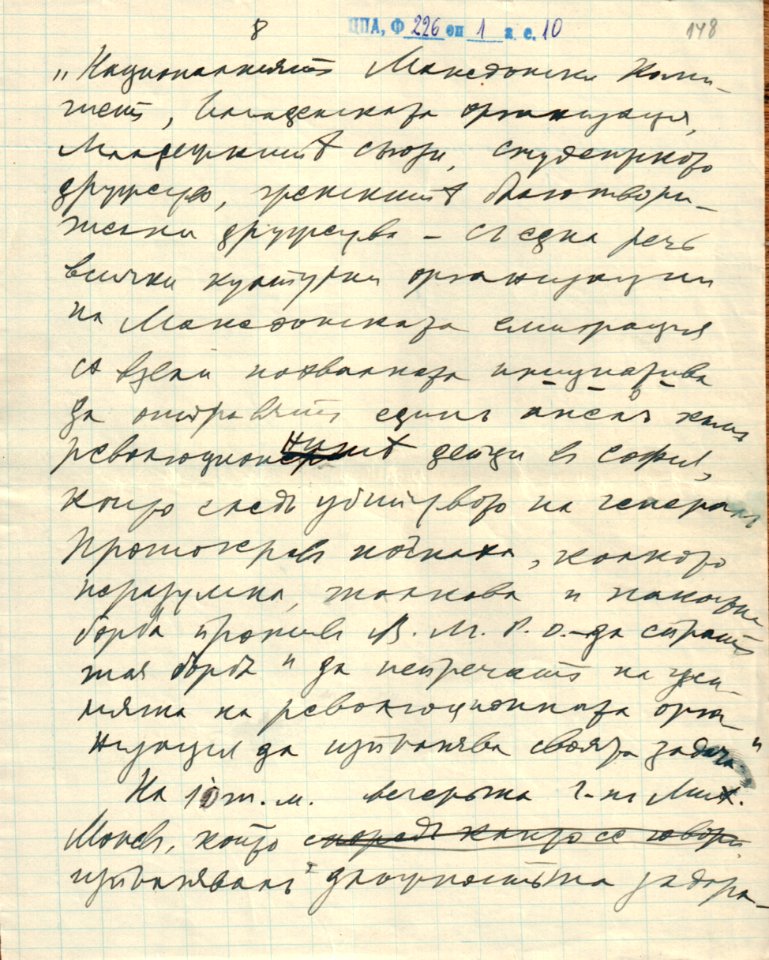 8 ЦПА, Ф 226 оп 1 а. е. 10 148
„Националниятъ Македонски Коми-
тетъ, Илинденската организация,
Младежкитѣ съюзи, студентското
дружество, женскитѣ благотвори-
телни дружества – съ една речь
всички културни организации
на Македонската емиграция
сѫ взели похвалната инициатива
да отправятъ единъ апелъ към
революционнитѣ дейци въ София,
които следъ убийството на генералъ
Протогеровъ почнаха, колкото
неразумна, толкова и
борба противъ В. М. Р. О. – да спратъ
тая борба и да непречатъ на
на революционната орга-
низация да изпълнява своята задача“
На 10 т. м. вечерьта г-нъ Мих.
Моневъ, който споредъ както се говори
изпълнявалъ длъжностьта задгра-